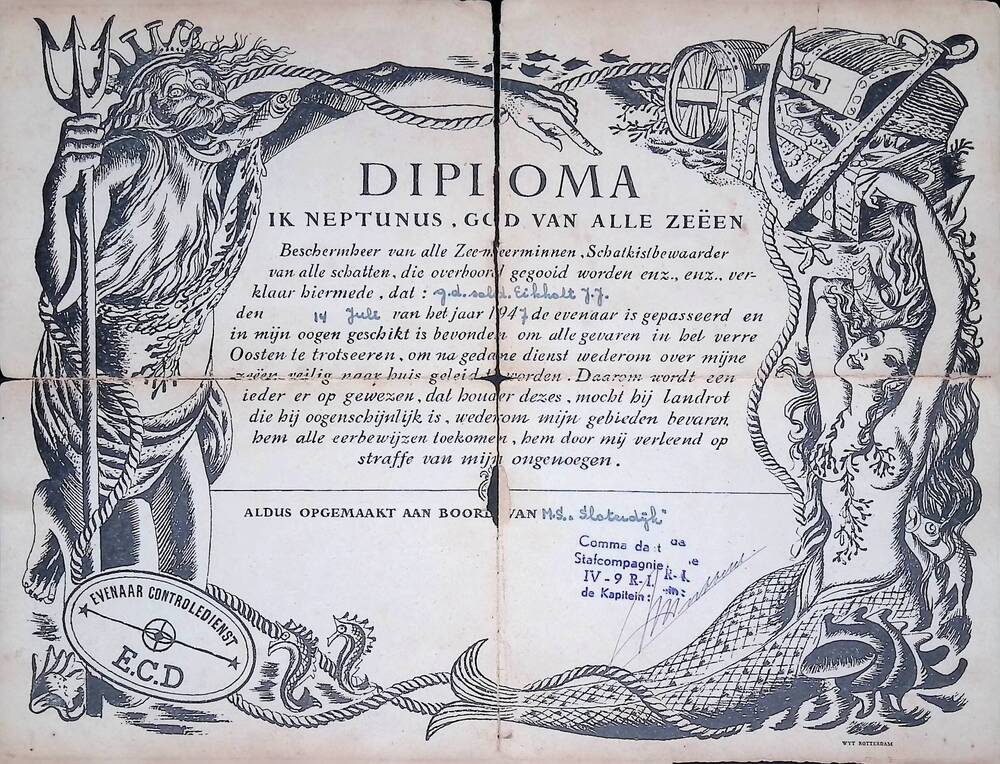 DIPLOMA
IK NEPTUNUS, GOD VAN ALLE ZEËEN
Beschermheer van alle Zee-meerminnen, Schatkistbewaarder
van alle schatten, die overboord gegooid worden enz., enz., ver-
klaar hiermede, dat: g.d. sold. Eikholt J.J.
den 14 Juli van het jaar 1947 de evenaar is gepasseerd en
in mijn oogen geschikt is bevonden om alle gevaren in het verre
Oosten te trotseeren, om na gedane dienst wederom over mijne
zeëen veilig naar huis geleid te worden. Daarom wordt een
ieder er op gewezen, dat houder dezes, mocht hij landrot
die hij oogenschijnlijk is, wederom mijn gebieden bevaren,
hem alle eerbewijzen toekomen, hem door mij verleend op
straffe van mijn ongenoegen.
ALDUS OPGEMAAKT AAN BOORD VAN M.S. "Sloterdijk"
Comma da t
Stafcompagnie
IV-9 R-I.
de Kapitein:
EVENAAR CONTROLEDIENST
E.C.D
WYT ROTTERDAM